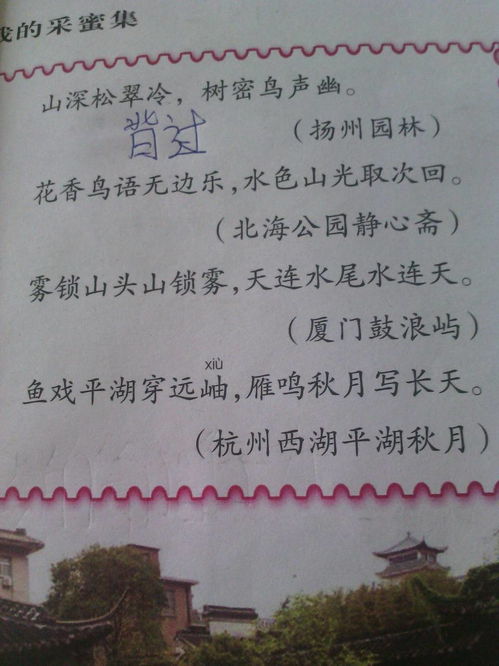 我的采蜜集
山深松翠冷，树密鸟声幽。
背过
（扬州园林）
花香鸟语无边乐，水色山光取次回。
（北海公园静心斋）
雾锁山头山锁雾，天连水尾水连天。
（厦门鼓浪屿）
xiù
鱼戏平湖穿远岫，雁鸣秋月写长天。
（杭州西湖平湖秋月）